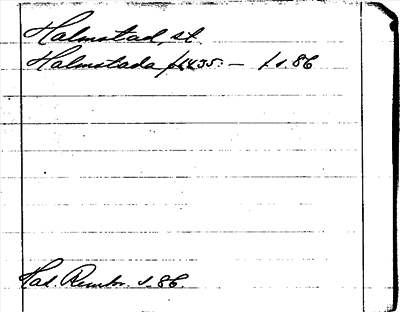 Halmstad, st.
Halmstada 1435. – l. s. 86
Had. Rembr. s. 86.